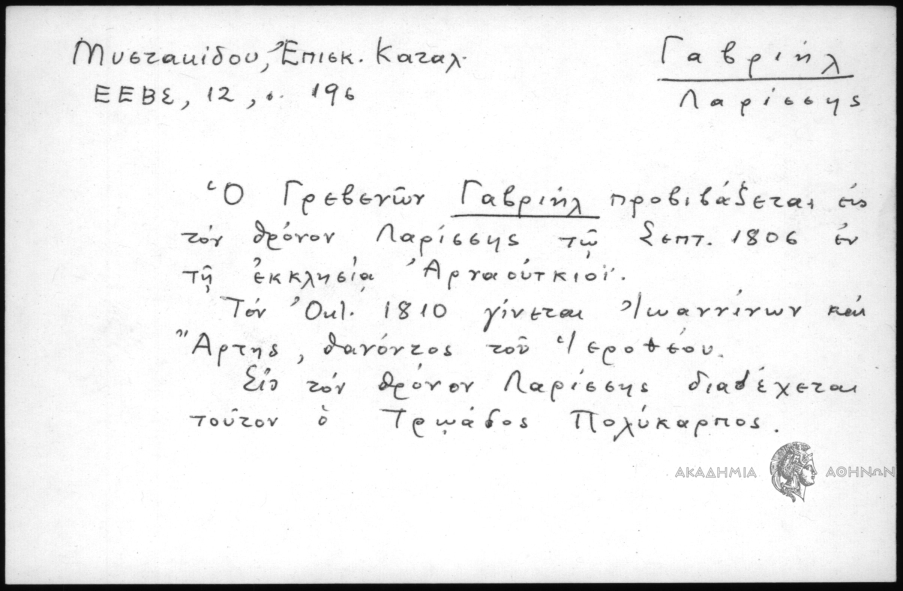 Μυστακίδου, Ἐπισκ. Καταλ.
ΕΕΒΣ, 12, σ. 196
Γαβριήλ
Λαρίσσης
Ὁ Γρεβενῶν Γαβριήλ προβιβάζεται εἰς
τόν θρόνον Λαρίσσης τῷ Σεπτ. 1806 ἐν
τῇ ἐκκλησίᾳ Ἀρναούτκιοϊ.
Τόν Ὀκτ. 1810 γίνεται Ἰωαννίνων καί
Ἄρτης, θανόντος τοῦ Ἱεροθέου.
Εἰς τόν θρόνον Λαρίσσης διαδέχεται
τοῦτον ὁ Τρῳάδος Πολύκαρπος.
ΑΚΑΔΗΜΙΑ ΑΘΗΝΩΝ